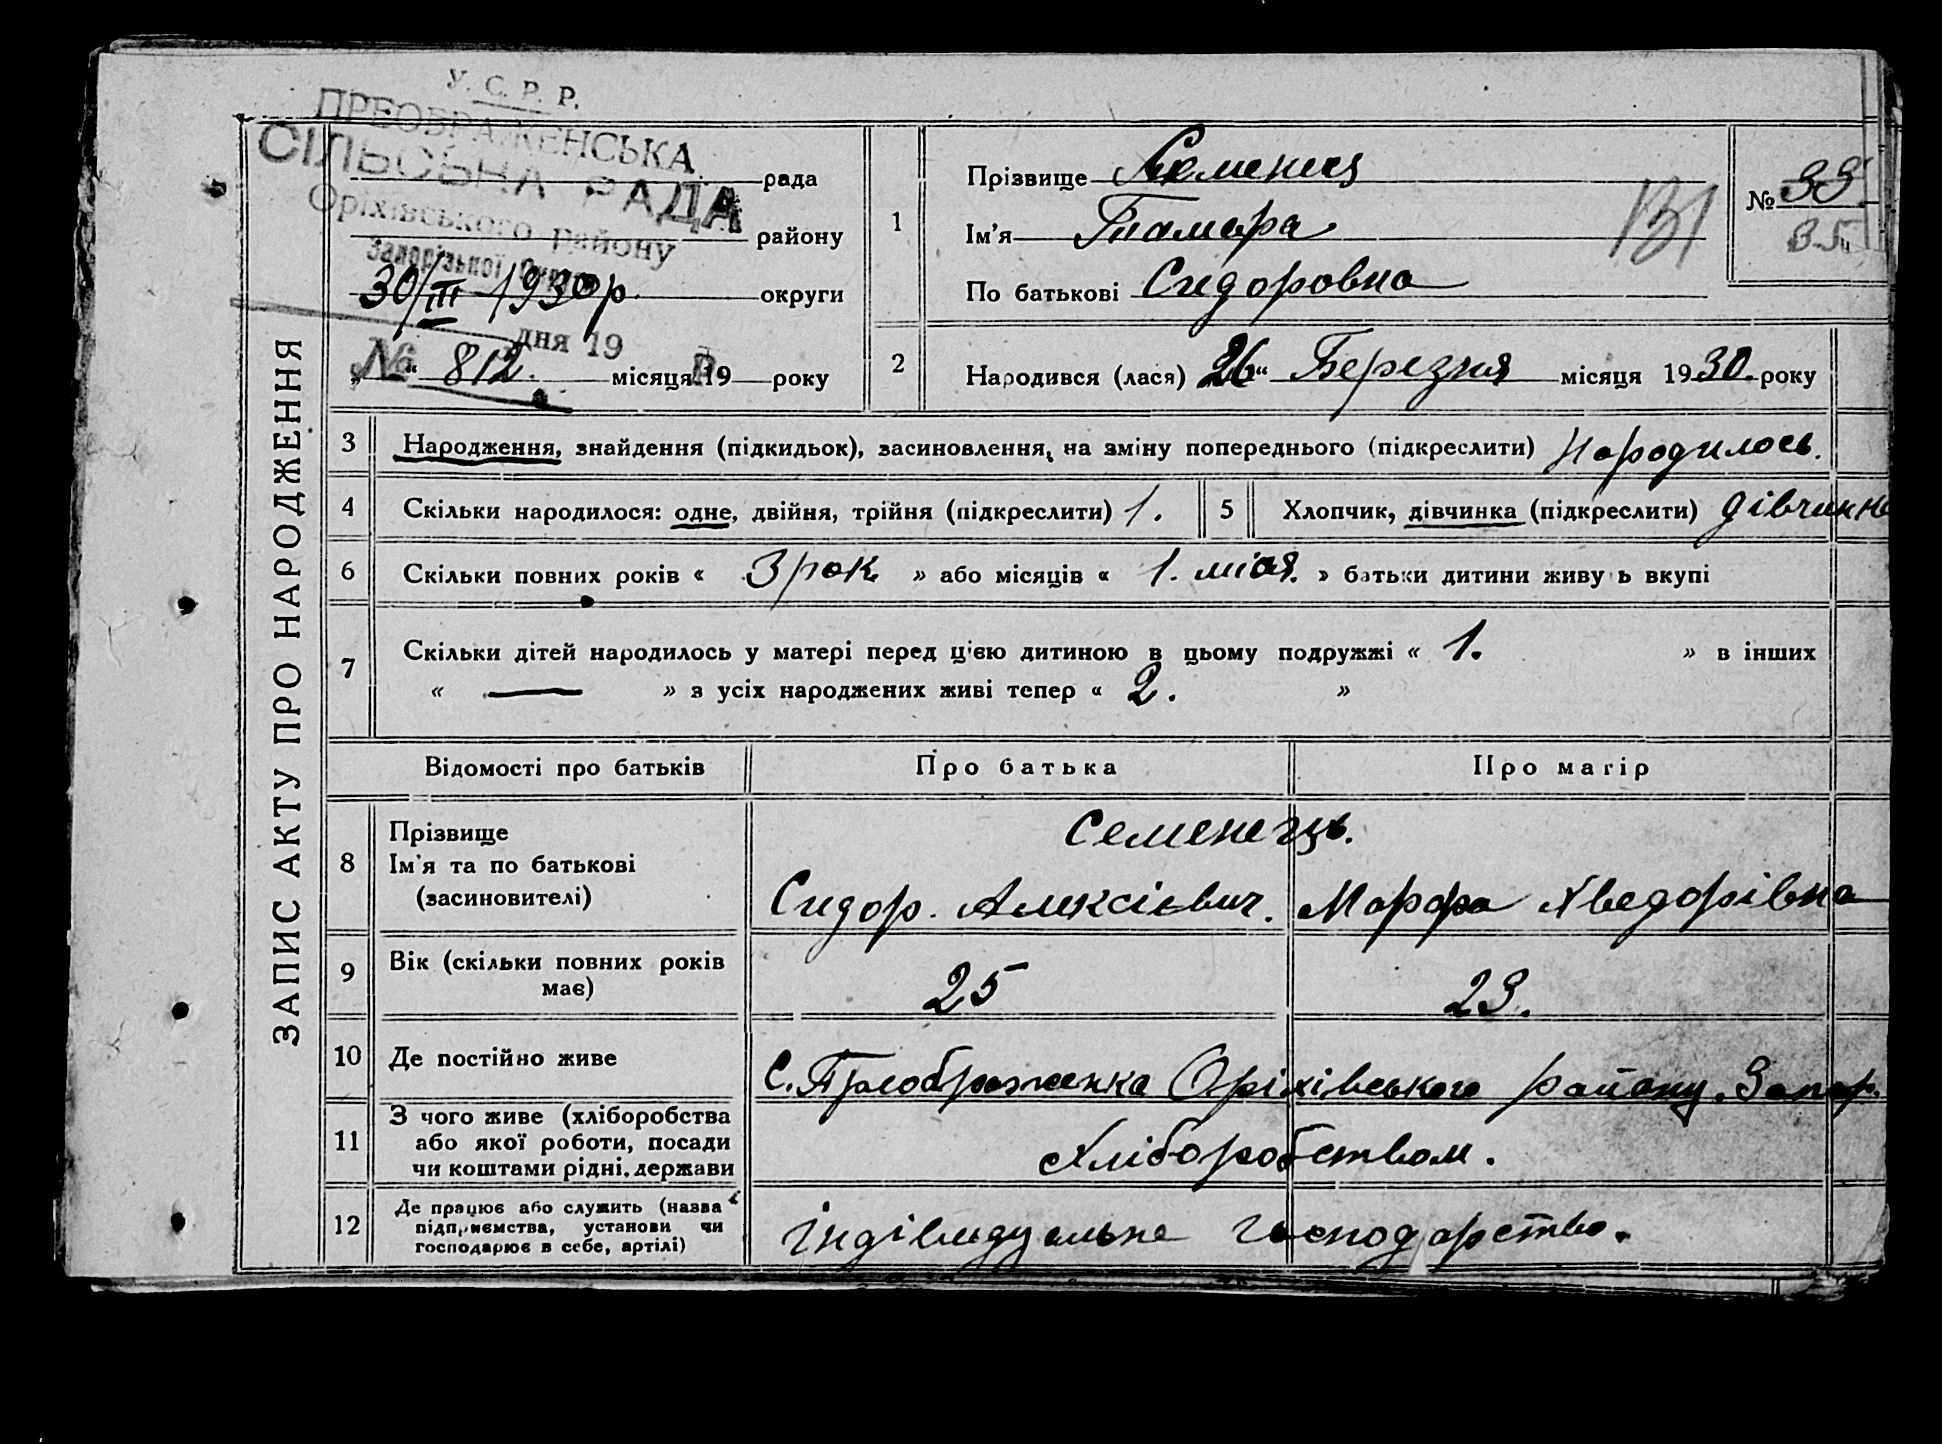 У. С. Р. Р.
ПРЕОБРАЖЕНСЬКА
СІЛЬСЬКА РАДА
рада
Оріхівського району
району
Запорізької Округи
30/III 1930 р.
округи
дня 19 р.
№ 812.
„ “ місяця 19 року
Прізвище Семенец
1
Ім'я Тамара
По батькові Сидоровна
№ 33
35
131
2
Народився (лася) 26 “ Березня місяця 1930 року
ЗАПИС АКТУ ПРО НАРОДЖЕННЯ
3 Народження, знайдення (підкидьок), засиновлення, на зміну попереднього (підкреслити) Народилось.
4 Скільки народилося: одне, двійня, трійня (підкреслити) 1. 5 Хлопчик, дівчинка (підкреслити) дівчинка
6 Скільки повних років « 3 рок » або місяців « 1. міся. » батьки дитини живуть вкупі
7 Скільки дітей народилось у матері перед ц'єю дитиною в цьому подружжі « 1. » в інших
« — » з усіх народжених живі тепер « 2. »
Відомості про батьків Про батька Про матір
8 Прізвище Семенець.
Ім'я та по батькові
(засиновителі) Сидор. Алексієвич. Марфа Хведорівна
9 Вік (скільки повних років
має) 25 23.
10 Де постійно живе С. Преображенка Оріхівського району. Запор.
11 З чого живе (хліборобства
або якої роботи, посади
чи коштами рідні, держави Хліборобством.
12 Де працює або служить (назва
підприємства, установи чи
господарює в себе, артілі) індівидуальне господарство.